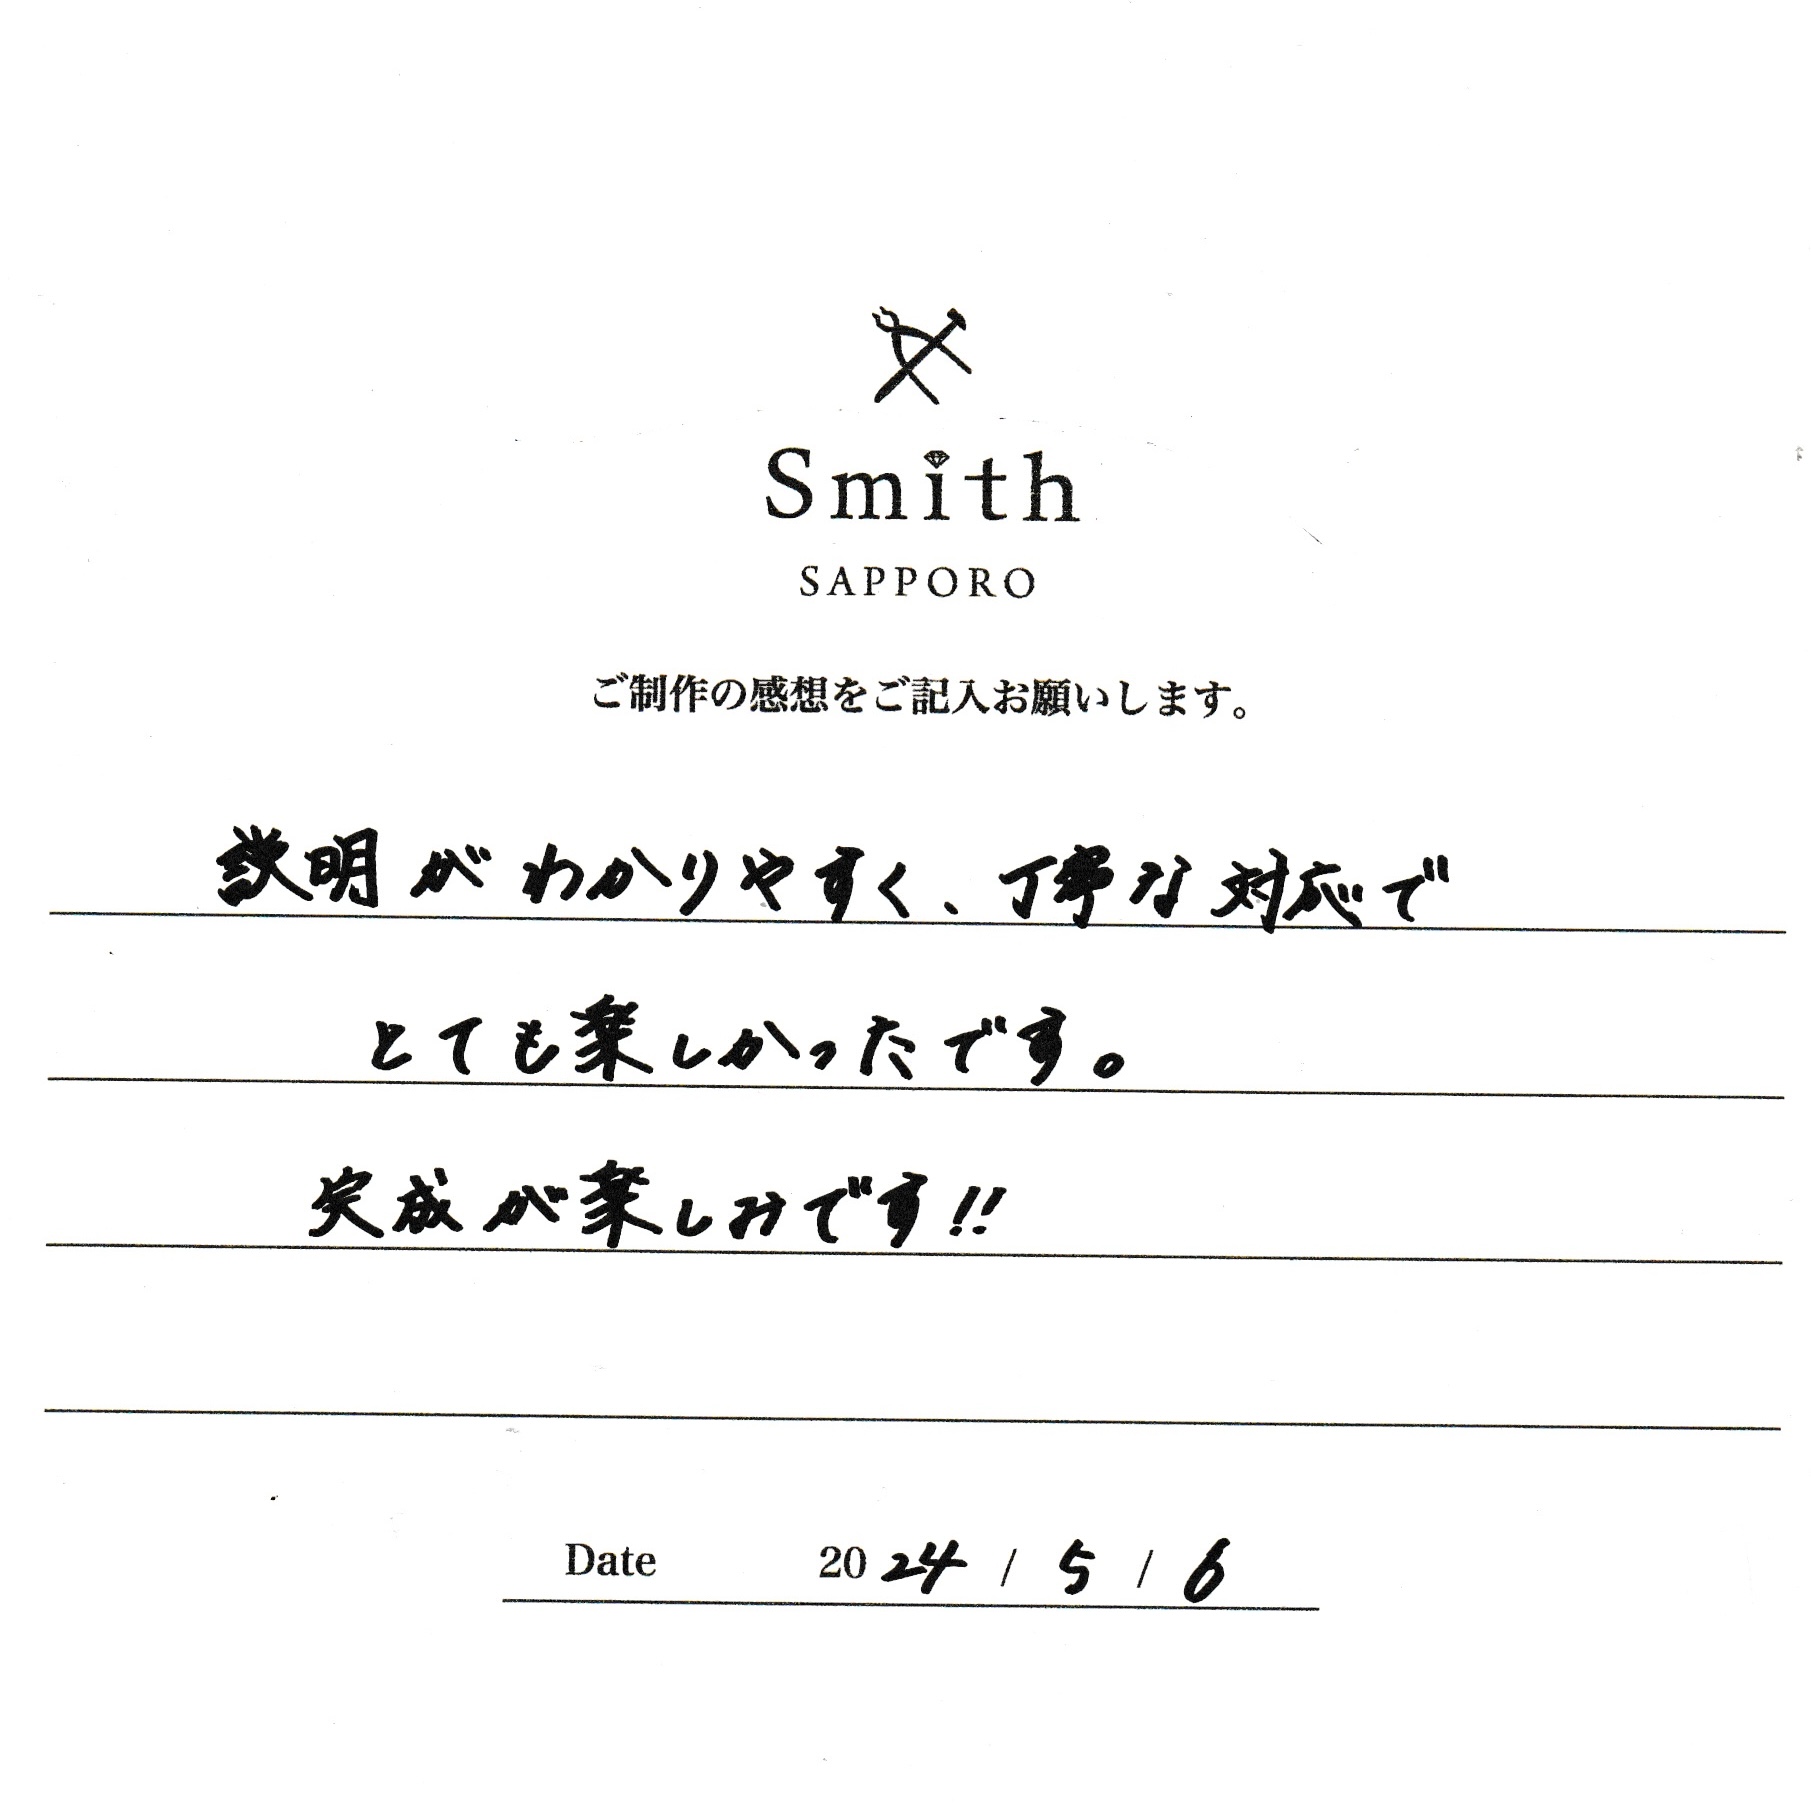 Smith
SAPPORO
ご制作の感想をご記入お願いします。
説明がわかりやすく、丁寧な対応で
とても楽しかったです。
完成が楽しみです!!
Date 2024 / 5 / 6